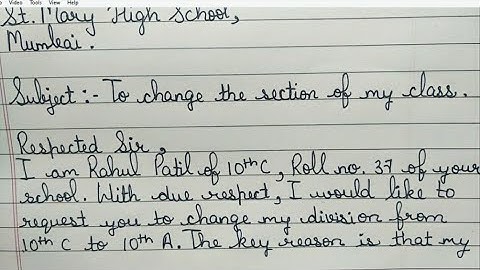 Video Tools View Help
St. Mary High School,
Mumbai.
Subject :- To change the section of my class.
Respected Sir,
I am Rahul Patil of 10th C, Roll no. 37 of your
school. With due respect, I would like to
request you to change my division from
10th C to 10th A. The key reason is that my